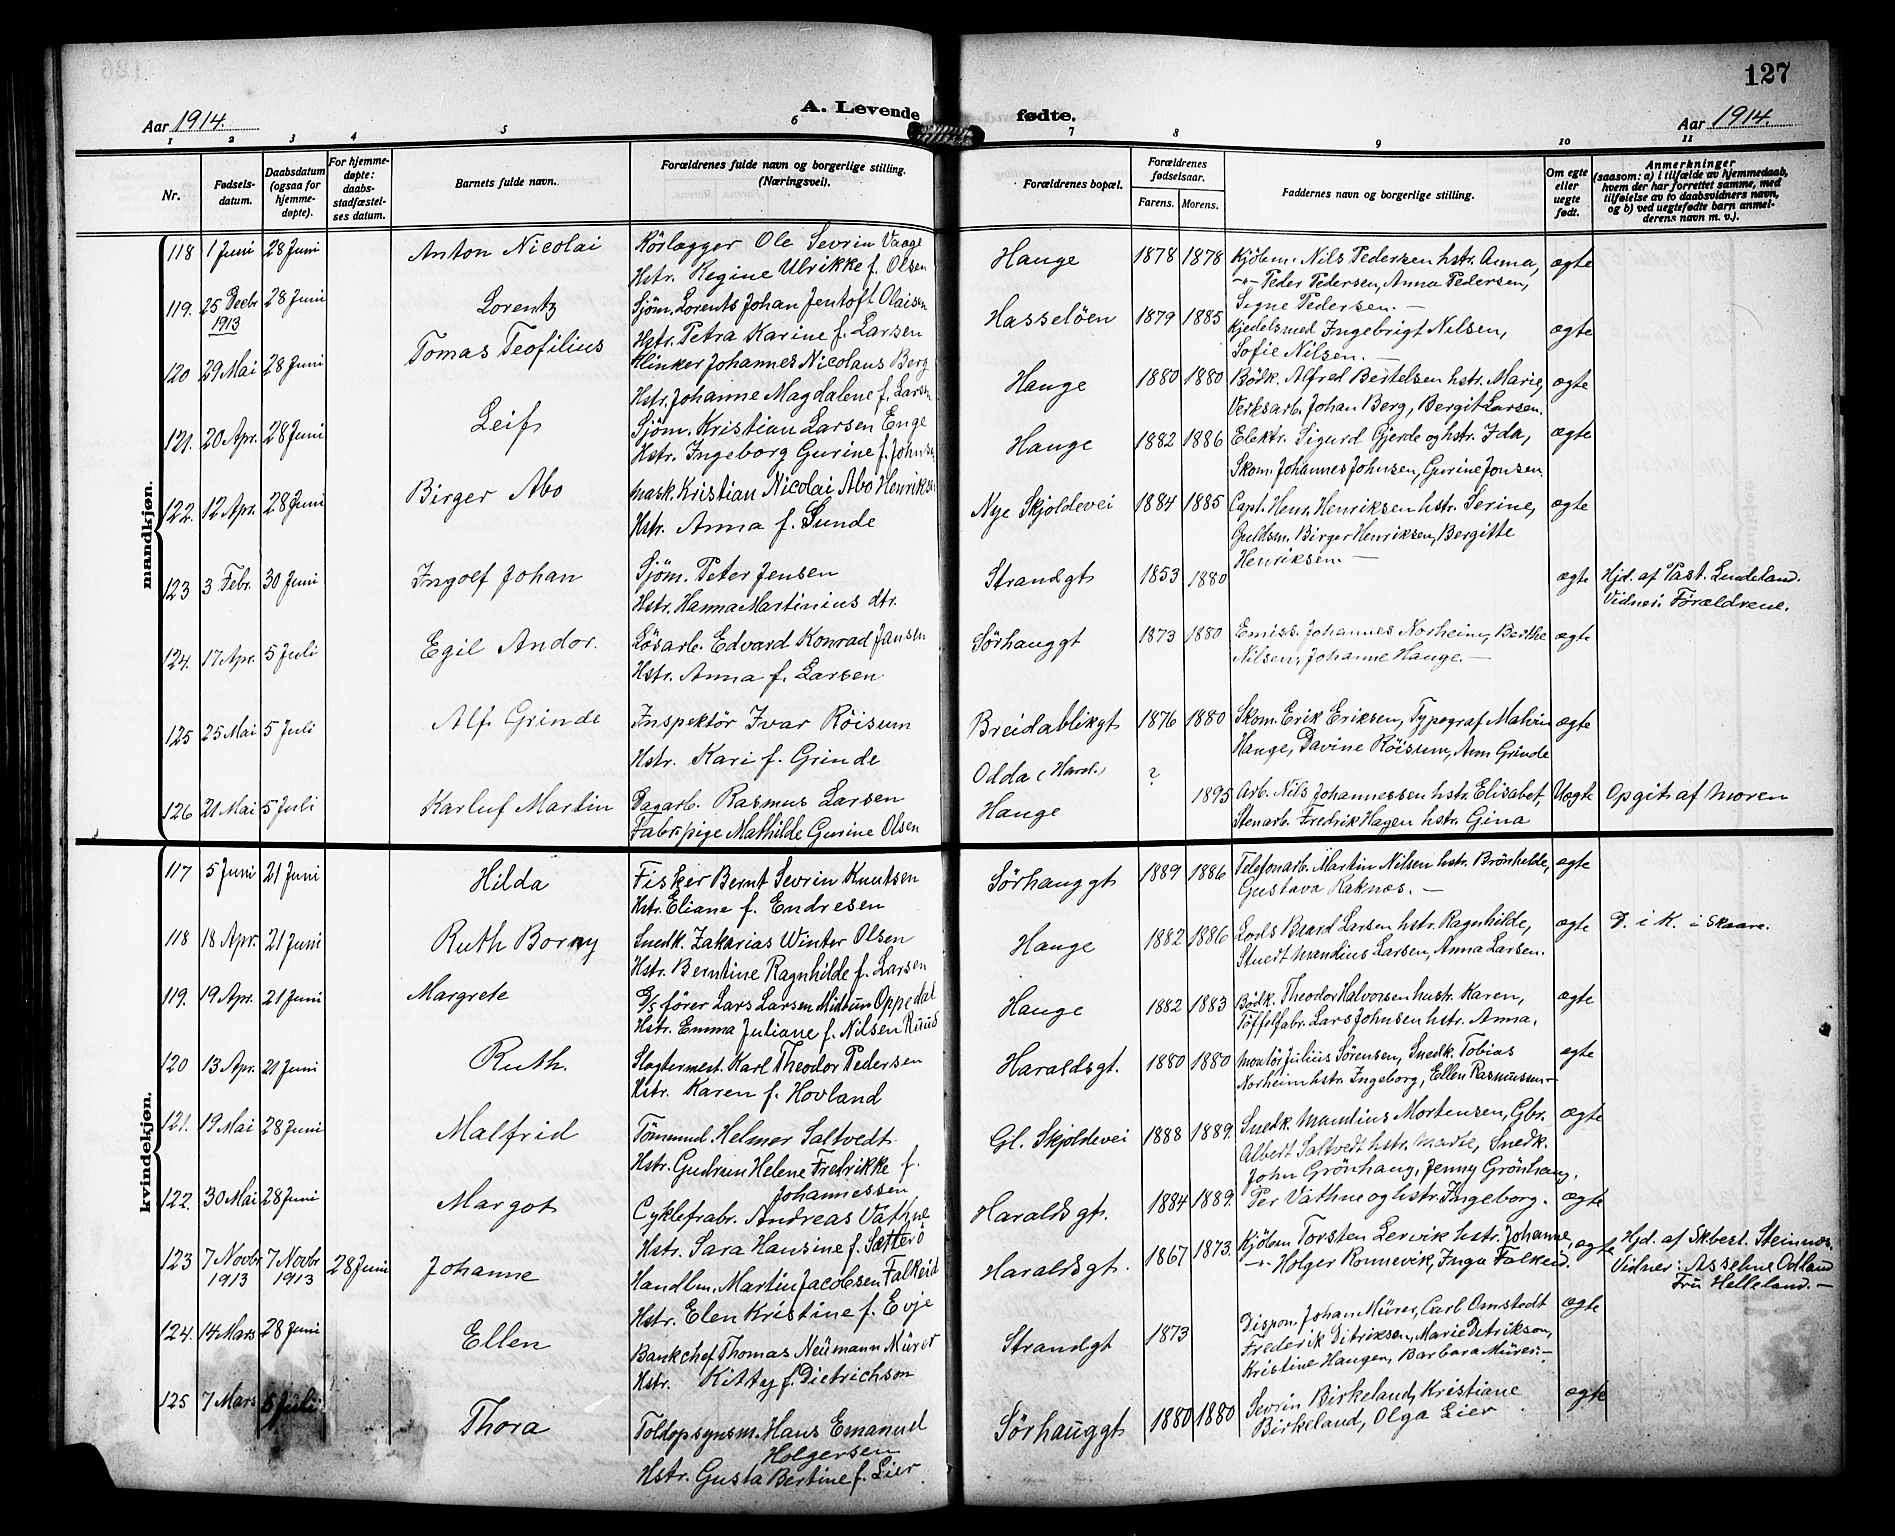 127
Aar 1914.
A. Levende fødte.
Aar 1914.
1 2 3 4 5 6 7 8 9 10 11
Nr.
Fødsels-
datum.
Daabsdatum
(ogsaa for
hjemme-
døpte).
For hjemme-
døpte:
daabs-
stadfæstel-
ses datum.
Barnets fulde navn.
Forældrenes fulde navn og borgerlige stilling.
(Næringsvei).
Forældrenes bopæl.
Forældrenes
fødselsaar.
Farens. Morens.
Faddernes navn og borgerlige stilling.
Om egte
eller
uegte
født.
Anmerkninger
(saasom: a) i tilfælde av hjemmedaab,
hvem der har forrettet samme, med
tilføielse av to daabsvidners navn,
og b) ved uegtefødte barn anmel-
derens navn m. v.).
mandkjøn.
118 1 Juni 28 Juni Anton Nicolai Rörlægger Ole Sevrin Vaage Hauge 1878 1878 Kjölem. Nils Pedersen hstr. Anna, ægte
Hstr. Regine Ulrikke f. Olsen -"- Peder Pedersen, Anna Pedersen,
Signe Pedersen.-
119. 25 Decbr 1913 28 Juni Lorentz Sjöm. Lorents Johan Jentoft Olaisen Hasselöen 1879 1885 Kjedelsmed Ingebrigt Nilsen, ægte
Hstr. Petra Karine f. Larsen Sofie Nilsen.-
120 29 Mai 28 Juni Tomas Teofilius Klinker Johannes Nicolaus Berg Hauge 1880 1880 Bödk. Alfred Bertelsen hstr. Marie, ægte
Hstr. Johanne Magdalene f. Larsen Verksarb. Johan Berg, Bergit Larsen.
121. 20 Apr. 28 Juni Leif Sjöm. Kristian Larsen Enge Hauge 1882 1886 Elektr. Sigurd Gjerde og hstr. Ida, ægte
Hstr. Ingeborg Gurine f. Johnsen Skom. Johannes Johnsen, Gurine Jonsen.
122. 12 Apr. 28 Juni Birger Abo Mask. Kristian Nicolai Abo Henriks. Nye Skjoldevei 1884 1885 Capt. Henr. Henriksen hstr. Serine, ægte
Hstr. Anna f. Sunde Guldsm. Birger Henriksen, Bergitte
Henriksen.-
123 3 Febr. 30 Juni Ingolf Johan Sjöm. Peter Jensen Strandgt 1853 1880 ægte Hjd. af Past. Lindeland.
Hstr. Hanna Martinius dtr. Vidner: Forældrene.
124. 17 Apr. 5 Juli Egil Andor. Lösarb. Edvard Konrad Jansen Sörhauggt 1873 1880 Emiss. Johannes Norheim, Berthe ægte
Hstr. Anna f. Larsen Nilsen, Johanne Hauge.-
125 25 Mai 5 Juli Alf Grinde Inspektör Ivar Röisum Breidablikgt 1876 1880 Skom. Erik Eriksen, Typograf Malvin ægte
Hstr. Kari f. Grinde Hauge, Davine Röisum, Ann Grinde
126 21 Mai 5 Juli Karluf Martin Dagarb. Rasmus Larsen Odda (Hard.) ? 1895 Arb. Nils Johannessen hstr. Elisabet, Uægte Opgit af Moren
Fabrpige Mathilde Gurine Olsen Hauge Stenarb. Fredrik Hagen hstr. Gina
kvindekjøn.
117 5 Juni 21 Juni Hilda Fisker Bernt Sevrin Knutsen Sörhauggt 1889 1886 Telefonarb. Martin Nilsen hstr. Brönhilde, ægte
Hstr. Eliane f. Endresen Gustava Raknes.-
118 18 Apr. 21 Juni Ruth Borny Snedk. Zakarias Winter Olsen Hauge 1882 1886 Lods Baard Larsen hstr. Ragnhilde, ægte D. i K. i Skaare.
Hstr. Berntine Ragnhilde f. Larsen Stuert Mandius Larsen, Anna Larsen.
119. 19 Apr. 21 Juni Margrete D/S förer Lars Larsen Midtun Oppedal Hauge 1882 1883 Bödk. Theodor Halvorsen hustr. Karen, ægte
Hstr. Emma Juliane f. Nilsen Ruud Töffelfabr. Lars Johnsen hstr. Anna.
120 13 Apr. 21 Juni Ruth. Slagtermest. Karl Theodor Pedersen Haraldsgt. 1880 1880 Montör Julius Sörensen, Snedk. Tobias ægte
Hstr. Karen f. Hovland Norheim hstr. Ingeborg, Ellen Rasmussen-
121. 19 Mai 28 Juni Malfrid Tömmermd. Helmer Saltvedt Gl. Skjoldevei 1888 1889. Snedk. Mandius Mortensen, Gbr. ægte
Hstr. Gudrun Helene Fredrikke f. Albert Saltvedt hstr. Marte, Snedk.
Johannessen John Grönhaug, Jenny Grönhaug.
122. 30 Mai 28 Juni Margot Cyklefabr. Andreas Vathne Haraldsgt. 1884 1889. Per Vathne og hstr. Ingeborg. ægte
Hstr. Sara Hansine f. Sætterö
123 7 Novbr 1913 7 Novbr 1913 28 Juni Johanne Handlm. Martin Jacobsen Falkeid Haraldsgt. 1867 1873. Kjölem Torsten Lervik hstr. Johanne, ægte Hjd. af Skbest. Steinnes.
Hstr. Elen Kristine f. Evje -"- Holger Rönnevik, Inga Falkeid. Vidner: Asseline Odland
Fru Helleland.-
124. 14 Mars 28 Juni Ellen Bankchef Thomas Neümann Mürer Strandgt 1873 Dispon. Johan Mürer, Carl Omstedt ægte
Hstr. Kitty f. Dietrichson Frederik Ditriksen, Marie Ditrikson,
Kristine Haugen, Barbara Mürer.-
125 7 Mars 5 Juli Thora Toldopsynsm. Hans Emanuel Sörhauggt 1880 1880 Sevrin Birkeland, Kristiane ægte
Holgersen Birkeland, Olga Eier
Hstr. Gusta Bertine f. Eier